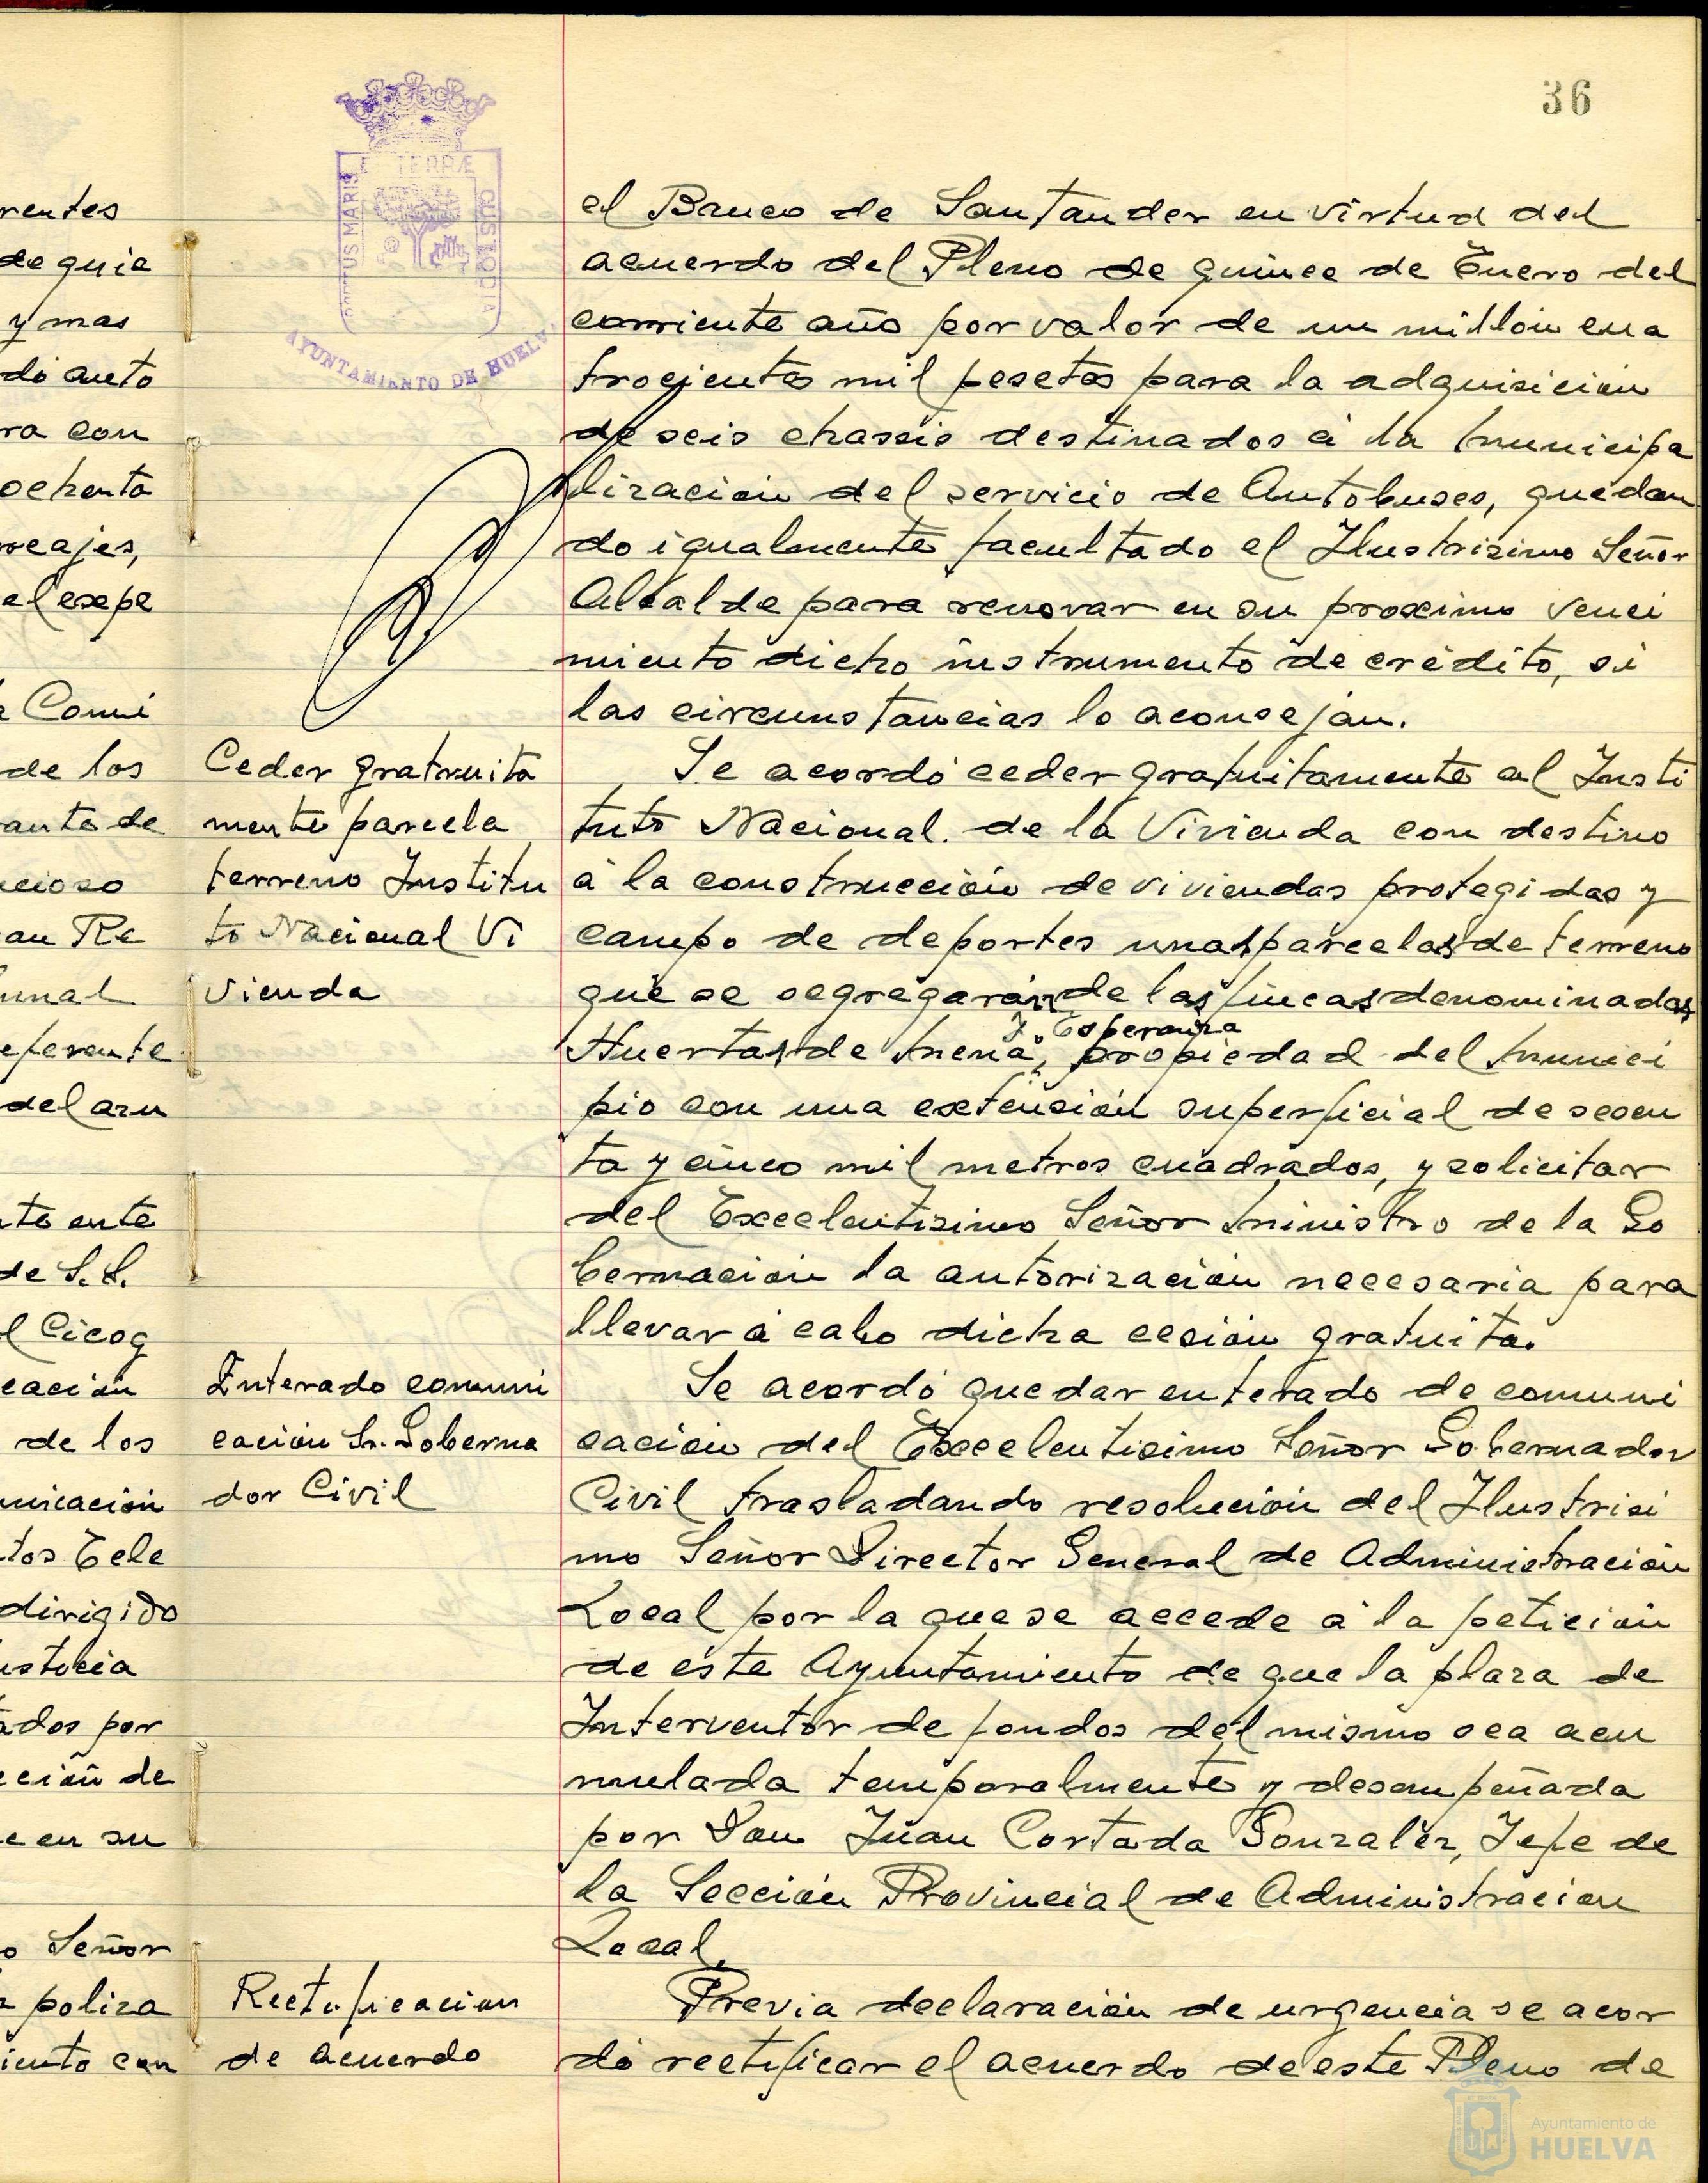 36
PORTUS MARIS
ET TERRÆ
CUSTODIA
AYUNTAMIENTO DE HUELVA
rentes
de guie
y mas
dó auto
ra con
ochenta
reajes,
el expe
Comi
de los
ante de
cioso
an Re
unal
eferente
del azu
nte ante
de S.S.
l Cicog
cación
de los
unicación
tos Tele
dirigido
ados por
cción de
e en su
o Señor
poliza
iento con
el Banco de Santander en virtud del
acuerdo del Pleno de quince de Enero del
corriente año por valor de un millón cua
trocientas mil pesetas para la adquisición
de seis chassis destinados á la municipa
lización del servicio de Autobuses, quedan
do igualmente facultado el Ilustrisimo Señor
Alcalde para renovar en su proximo venci
miento dicho instrumento de crédito, si
las circunstancias lo aconsejan.
Ceder gratruita
mente parcela
terreno Institu
to Nacional Vi
vienda
Se acordó ceder gratuitamente al Insti
tuto Nacional. de la Vivienda con destino
á la construcción de viviendas protegidas y
campo de deportes unas parcelas de terreno
que se segregarán de las fincas denominadas
y Esperanza
Huertas de Mena, propiedad del Munici
pio con una extensión superficial de sesen
ta y cinco mil metros cuadrados, y solicitar
del Excelentisimo Señor Ministro de la Go
bernación la autorización necesaria para
llevar á cabo dicha cesión gratuita.
Enterado comuni
cación Sr. Goberna
dor Civil
Se acordó quedar enterado de comuni
cación del Excelentisimo Señor Gobernador
Civil trasladando resolución del Ilustrisi
mo Señor Director General de Administración
Local por la que se accede á la petición
de este Ayuntamiento de que la plaza de
Interventor de fondos del mismo sea acu
mulada temporalmente y desempeñada
por Don Juan Cortada Gonzalez, Jefe de
la Sección Provincial de Administracion
Local.
Rectificacion
de acuerdo
Previa declaración de urgencia se acor
dó rectificar el acuerdo de este Pleno de
Ayuntamiento de
HUELVA